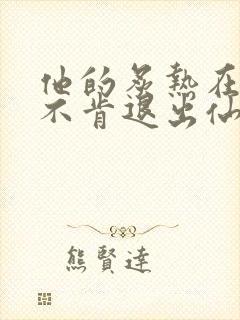 他的炙熱在
不肯退出仙
熊賢達